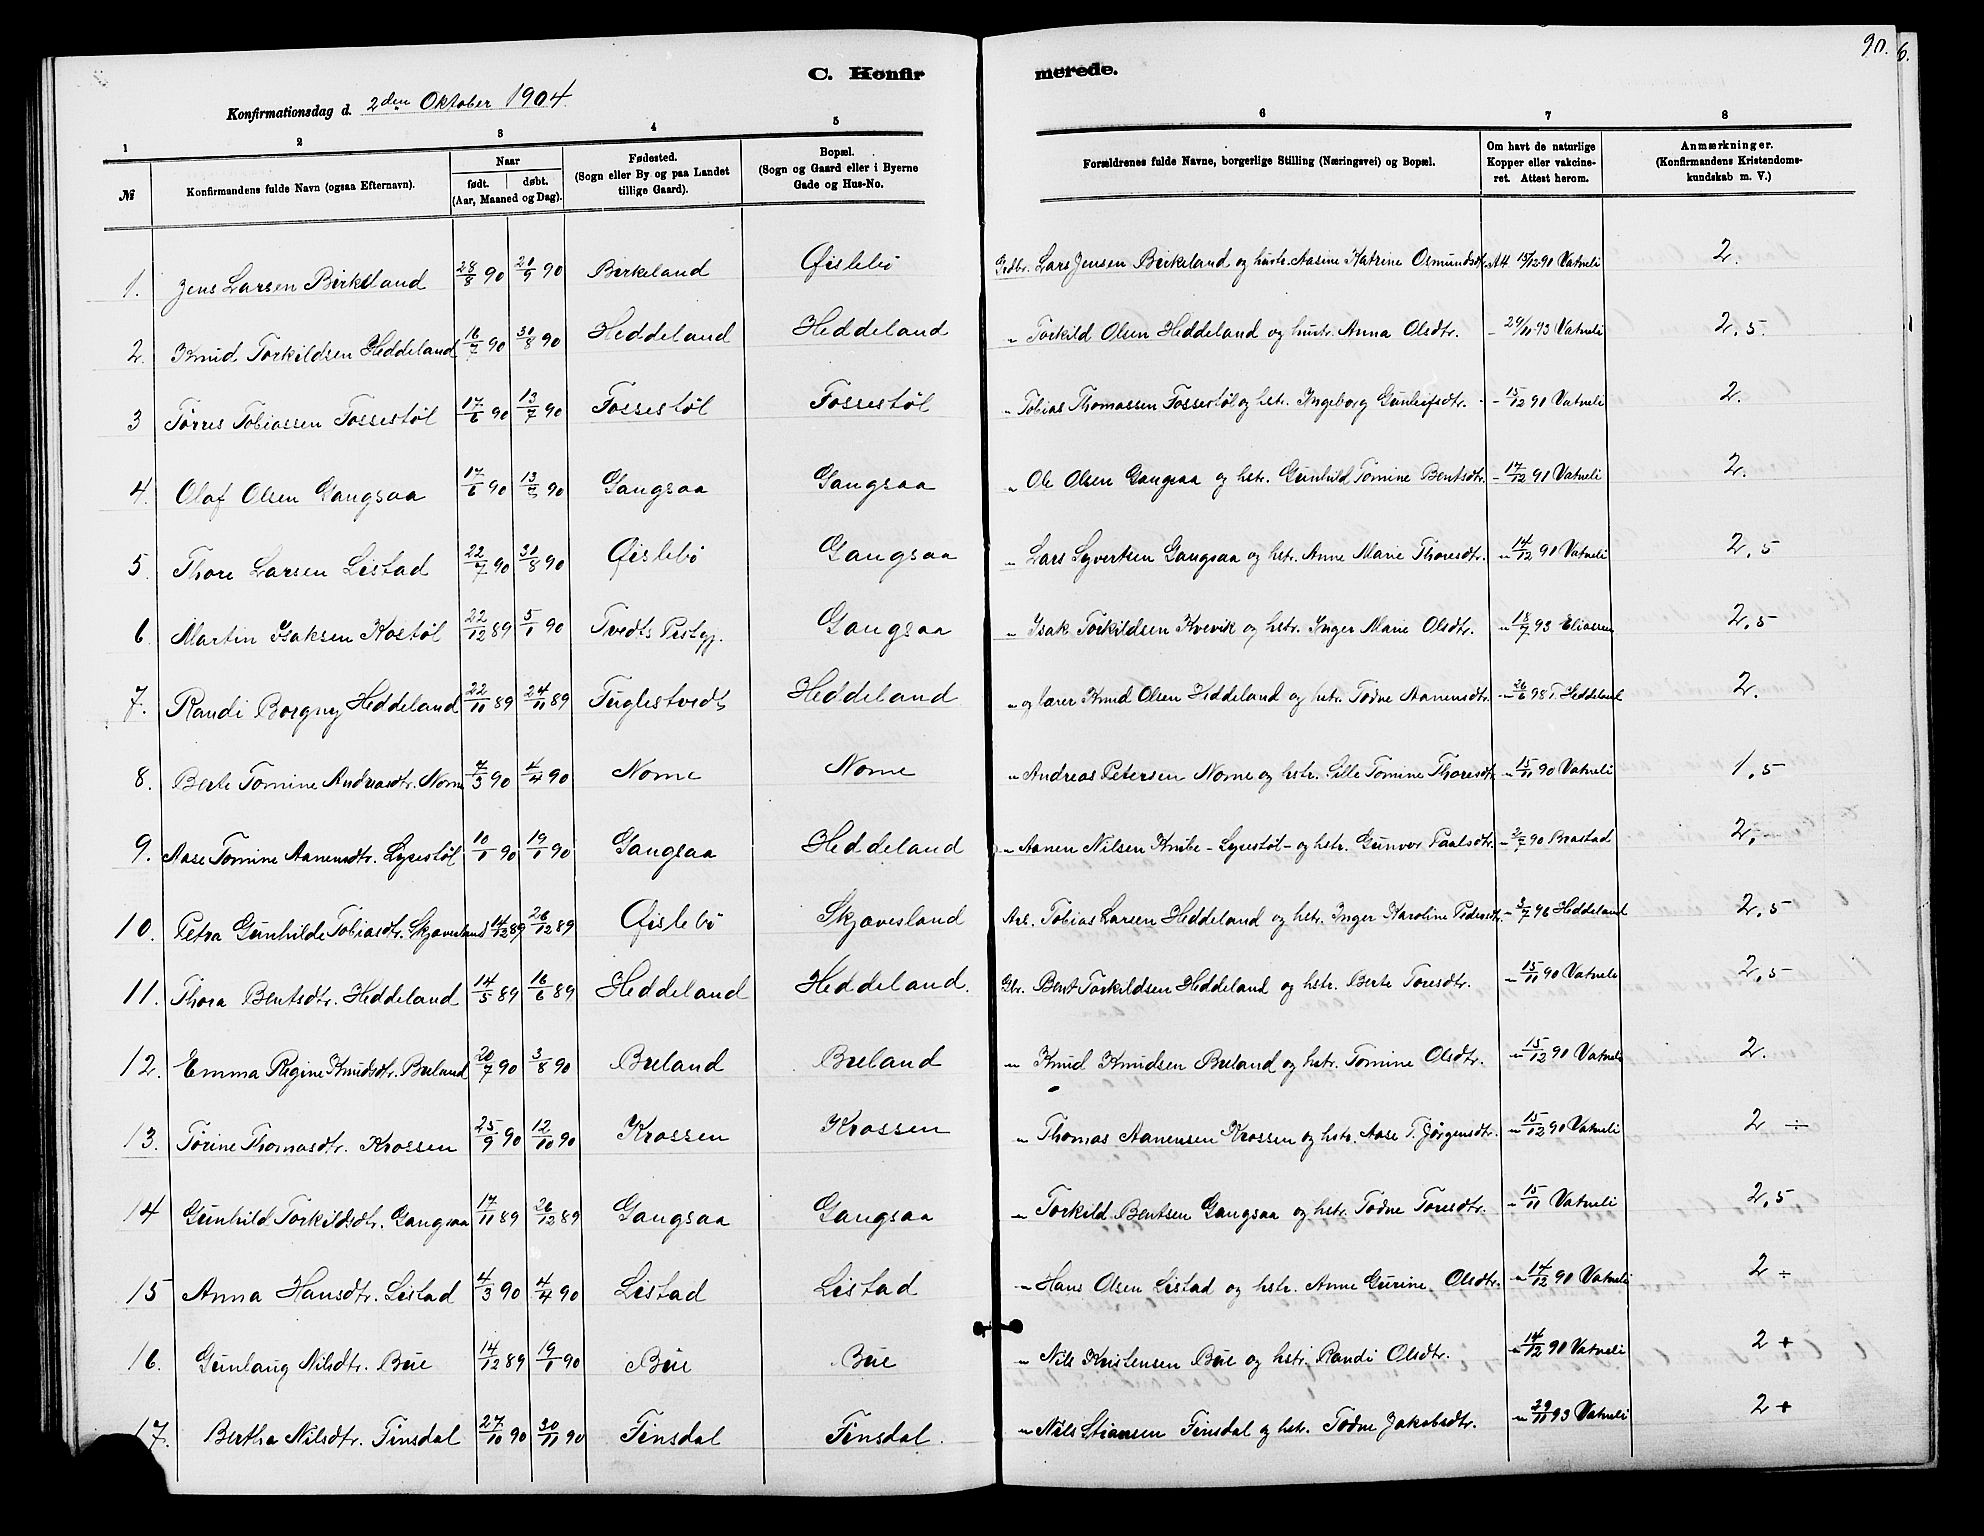 90. 6.
C. Konfirmerede.
Konfirmationsdag d. 2den Oktober 1904.
1 2 3 4 5 6 7 8
№ Konfirmandens fulde Navn (ogsaa Efternavn). Naar født. døbt. (Aar, Maaned og Dag). Fødested. (Sogn eller By og paa Landet tillige Gaard). Bopæl. (Sogn og Gaard eller i Byerne Gade og Hus-No. Forældrenes fulde Navne, borgerlige Stilling (Næringsvei) og Bopæl. Om havt de naturlige Kopper eller vakcineret. Attest herom. Anmærkninger. (Konfirmandens Kristendomskundskab m. V.)
1. Jens Larsen Birkeland 28/8 90 20/9 90 Birkeland Øislebø Grdbr. Lars Jensen Birkeland og hustr. Aasine Katrine Osmundsdtr. Att 15/12 90 Vatneli 2.
2. Knud Torkildsen Heddeland 16/7 90 30/8 90 Heddeland Heddeland " Torkild Olsen Heddeland og hustr. Anna Olsdtr. - 29/11 93 Vatneli 2,5.
3 Tørres Tobiassen Fossestøl 17/6 90 13/7 90 Fossestøl Fossestøl " Tobias Thomassen Fossestøl og hstr. Ingeborg Gunleifsdtr. - 15/12 90 Vatneli 2.
4. Olaf Olsen Gangsaa 17/6 90 13/7 90 Gangsaa Gangsaa " Ole Olsen Gangsaa og hstr. Gunhild Tomine Bentsdtr. - 17/12 90 Vatneli 2.
5. Thore Larsen Listad 22/7 90 30/8 90 Øislebø Gangsaa " Lars Syvertsen Gangsaa og hstr. Anne Marie Thoresdtr. - 14/12 90 Vatneli 2,5
6. Martin Isaksen Kostøl 22/12 89 5/1 90 Tvedts Pestgj. Gangsaa " Isak Torkildsen Kvevik og hstr. Inger Marie Olsdtr. " 18/7 93 Eliassen 2,5
7. Randi Borgny Heddeland 22/11 89 24/11 89 Fuglestvedt Heddeland " og lærer Knud Olsen Heddeland og hstr. Todne Aanensdtr. - 26/6 98 T. Heddeland 2.
8. Berte Tomine Andreasdtr. Nome 7/3 90 4/4 90 Nome Nome " Andreas Petersen Nome og hstr. Sille Tomine Thoresdtr. - 15/11 90 Vatneli 1,5
9. Aase Tomine Aanensdtr. Lyestøl 10/1 90 19/1 90 Gangsaa Heddeland " Aanen Nilsen Knibe - Lyestøl - og hstr. Gunvor Paalsdtr. - 2/7 90 Brastad 2,-
10. Petra Gunhilde Tobiasdtr. Skjævesland 14/12 89 26/12 89 Øislebø Skjævesland Arb. Tobias Larsen Heddeland og hstr. Inger Karoline Pedersdtr. - 3/7 96 Heddeland 2,5
11. Thora Bentsdtr. Heddeland 14/5 89 16/6 89 Heddeland Heddeland. Gbr. Bent Torkildsen Heddeland og hstr. Berte Toresdtr. - 15/11 90 Vatneli 2,5
12. Emma Regine Knudsdtr. Breland 20/7 90 3/8 90 Breland Breland " Knud Knudsen Breland og hstr. Tomine Olsdtr. - 15/12 90 Vatneli 2.
13. Torine Thomasdtr. Krossen 25/9 90 12/10 90 Krossen Krossen " Thomas Aanensen Krossen og hstr. Aase T. Jørgensdtr. - 15/12 90 Vatneli 2 ÷
14 Gunhild Torkildsdtr. Gangsaa 17/11 89 26/12 89 Gangsaa Gangsaa " Torkild Bentsen Gangsaa og hstr. Todne Toresdtr. - 15/11 Vatneli 2,5
15 Anna Hansdtr. Listad 4/3 90 4/4 90 Listad Listad " Hans Olsen Listad og hstr. Anne Gurine Olsdtr. - 14/12 90 Vatneli 2 ÷
16. Gunlaug Nilsdtr. Bue 14/12 89 19/1 90 Bue Bue " Nils Kristensen Bue og hstr. Randi Olsdtr. - 14/12 90 Vatneli 2 +
17. Bertha Nilsdtr. Finsdal 27/10 90 30/11 90 Finsdal Finsdal. " Nils Stiansen Finsdal og hstr. Todne Jakobsdtr. " 29/11 93 Vatneli 2 +